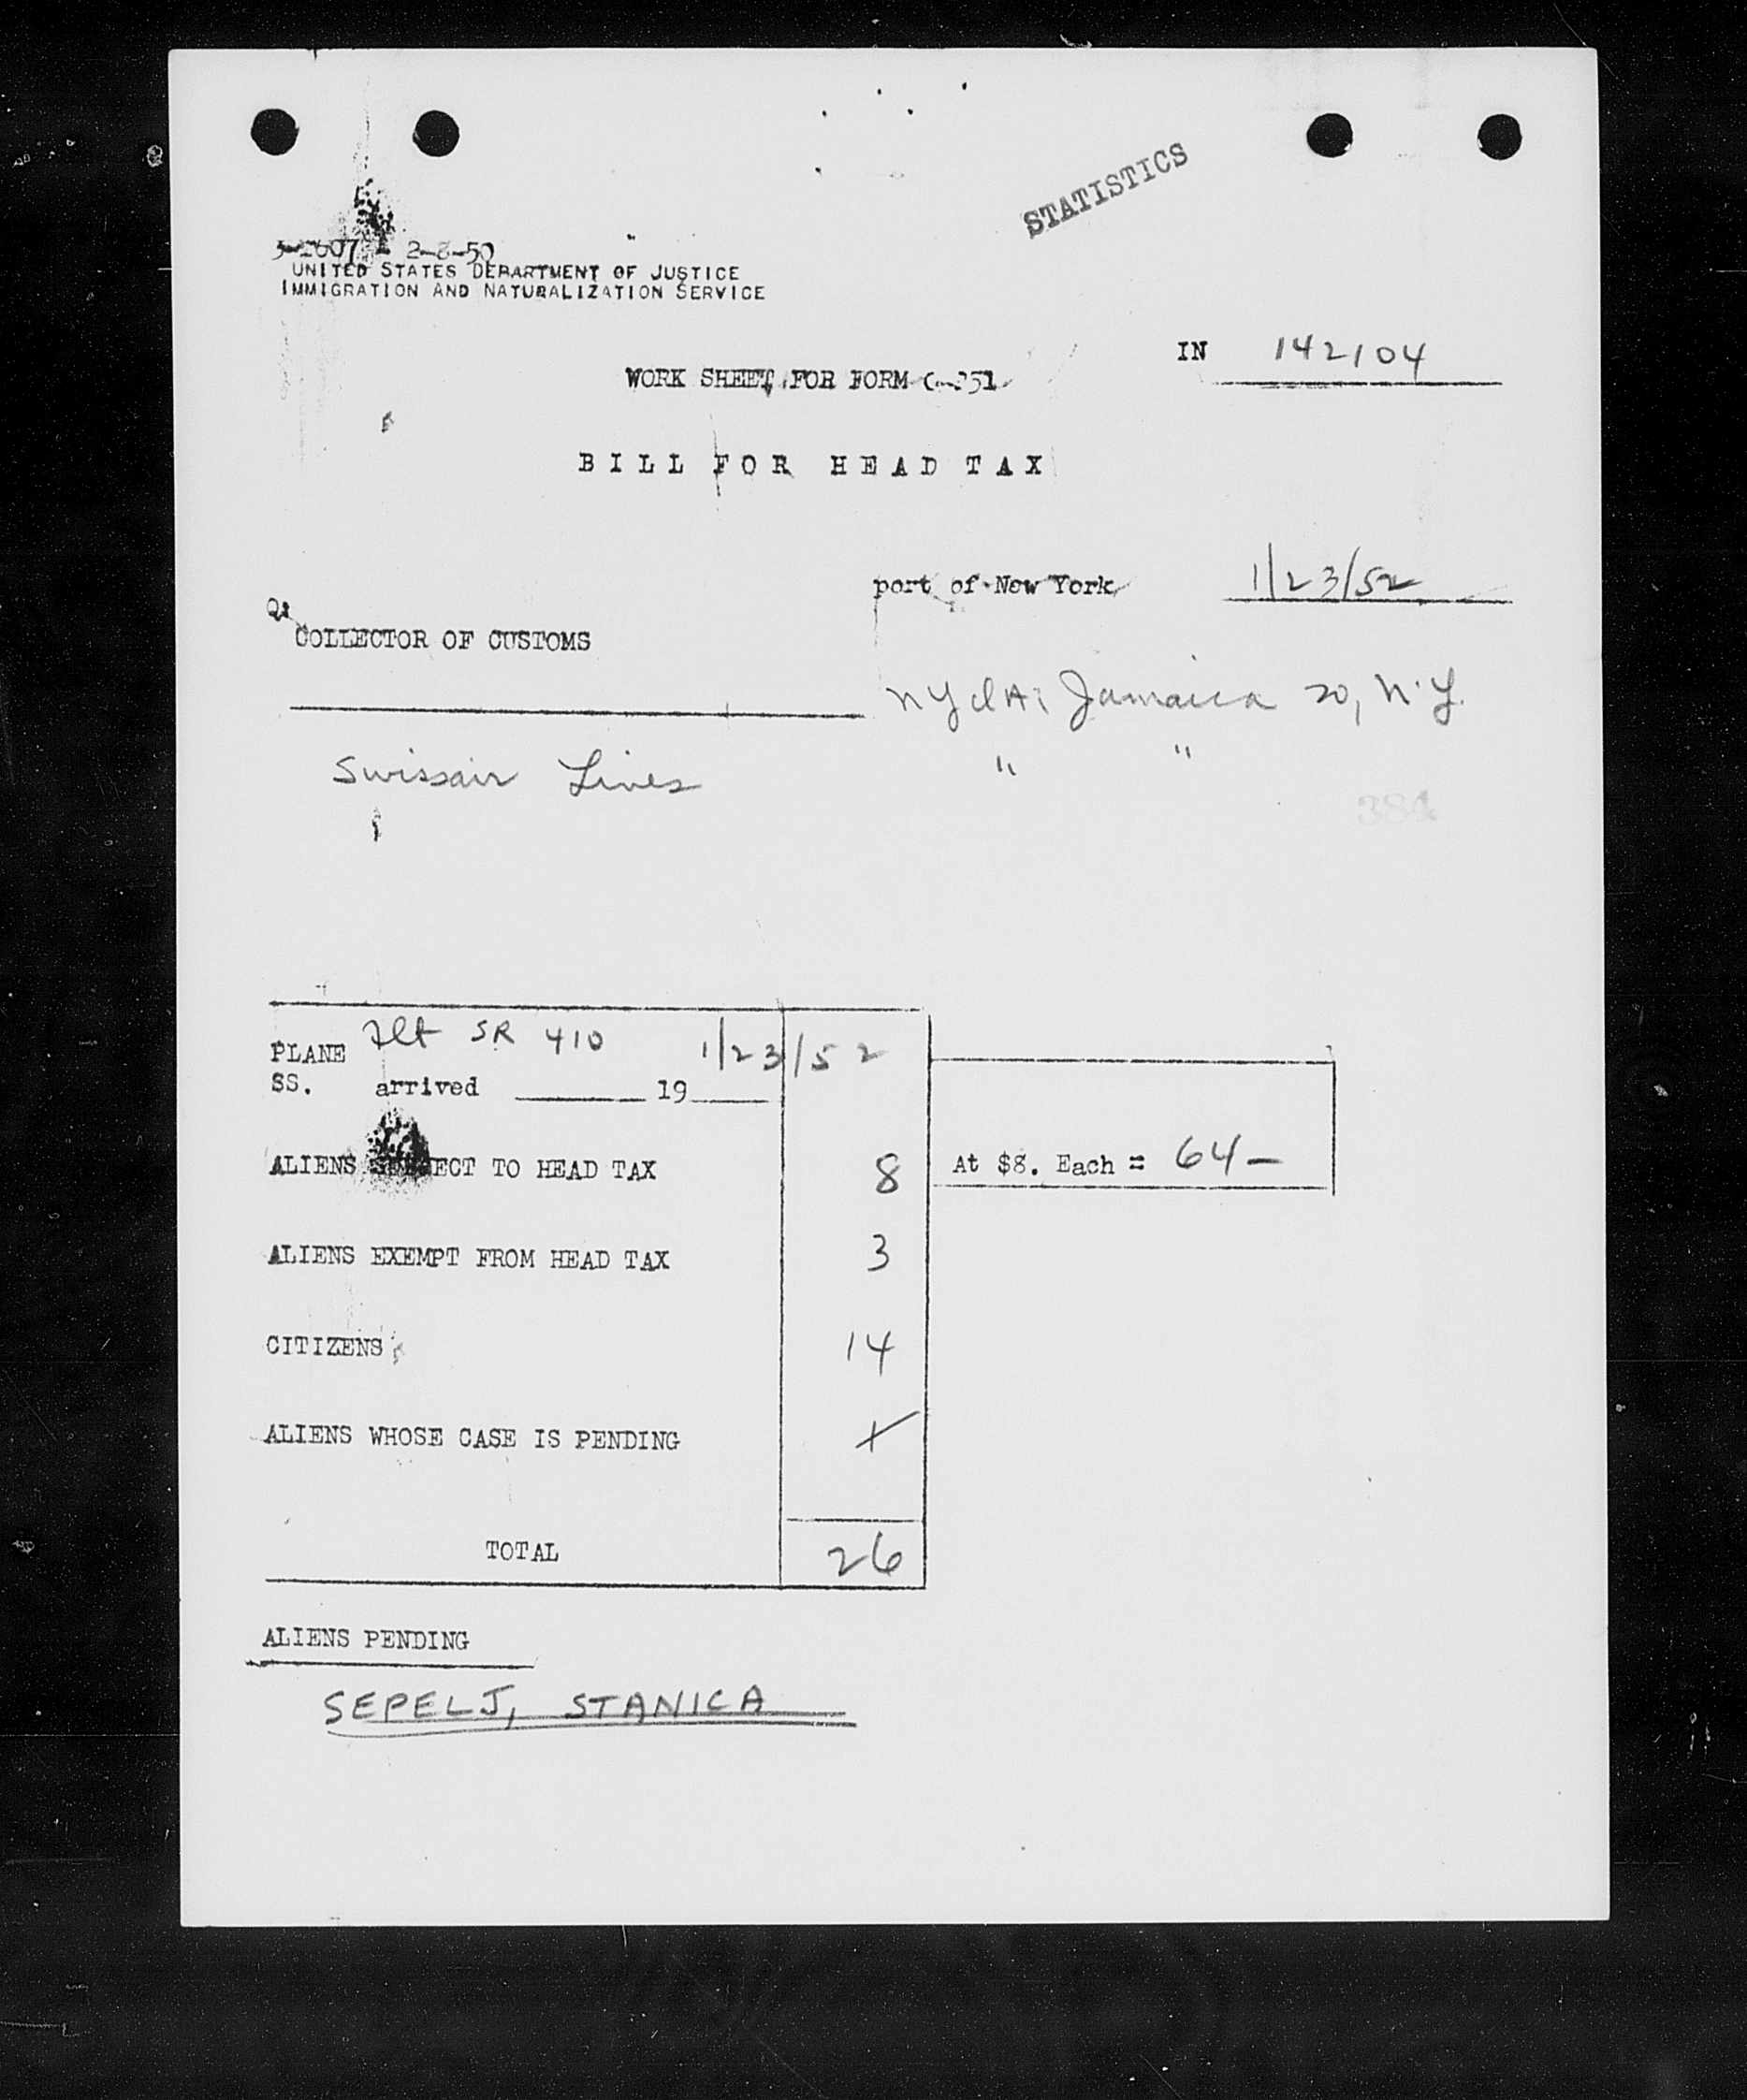 STATISTICS
2-8-50
UNITED STATES DEPARTMENT OF JUSTICE
IMMIGRATION AND NATURALIZATION SERVICE
IN 142104
WORK SHEET FOR FORM
BILL FOR HEAD TAX
port of New York 1/23/52
COLLECTOR OF CUSTOMS
Jamaica 20, N.Y.
Swissair Lines " "
384
PLANE flt SR 410 1/23/52
SS. arrived 19
ALIENS SUBJECT TO HEAD TAX 8 At $8. Each = 64-
ALIENS EXEMPT FROM HEAD TAX 3
CITIZENS 14
ALIENS WHOSE CASE IS PENDING
TOTAL 26
ALIENS PENDING
SEPELJ, STANICA